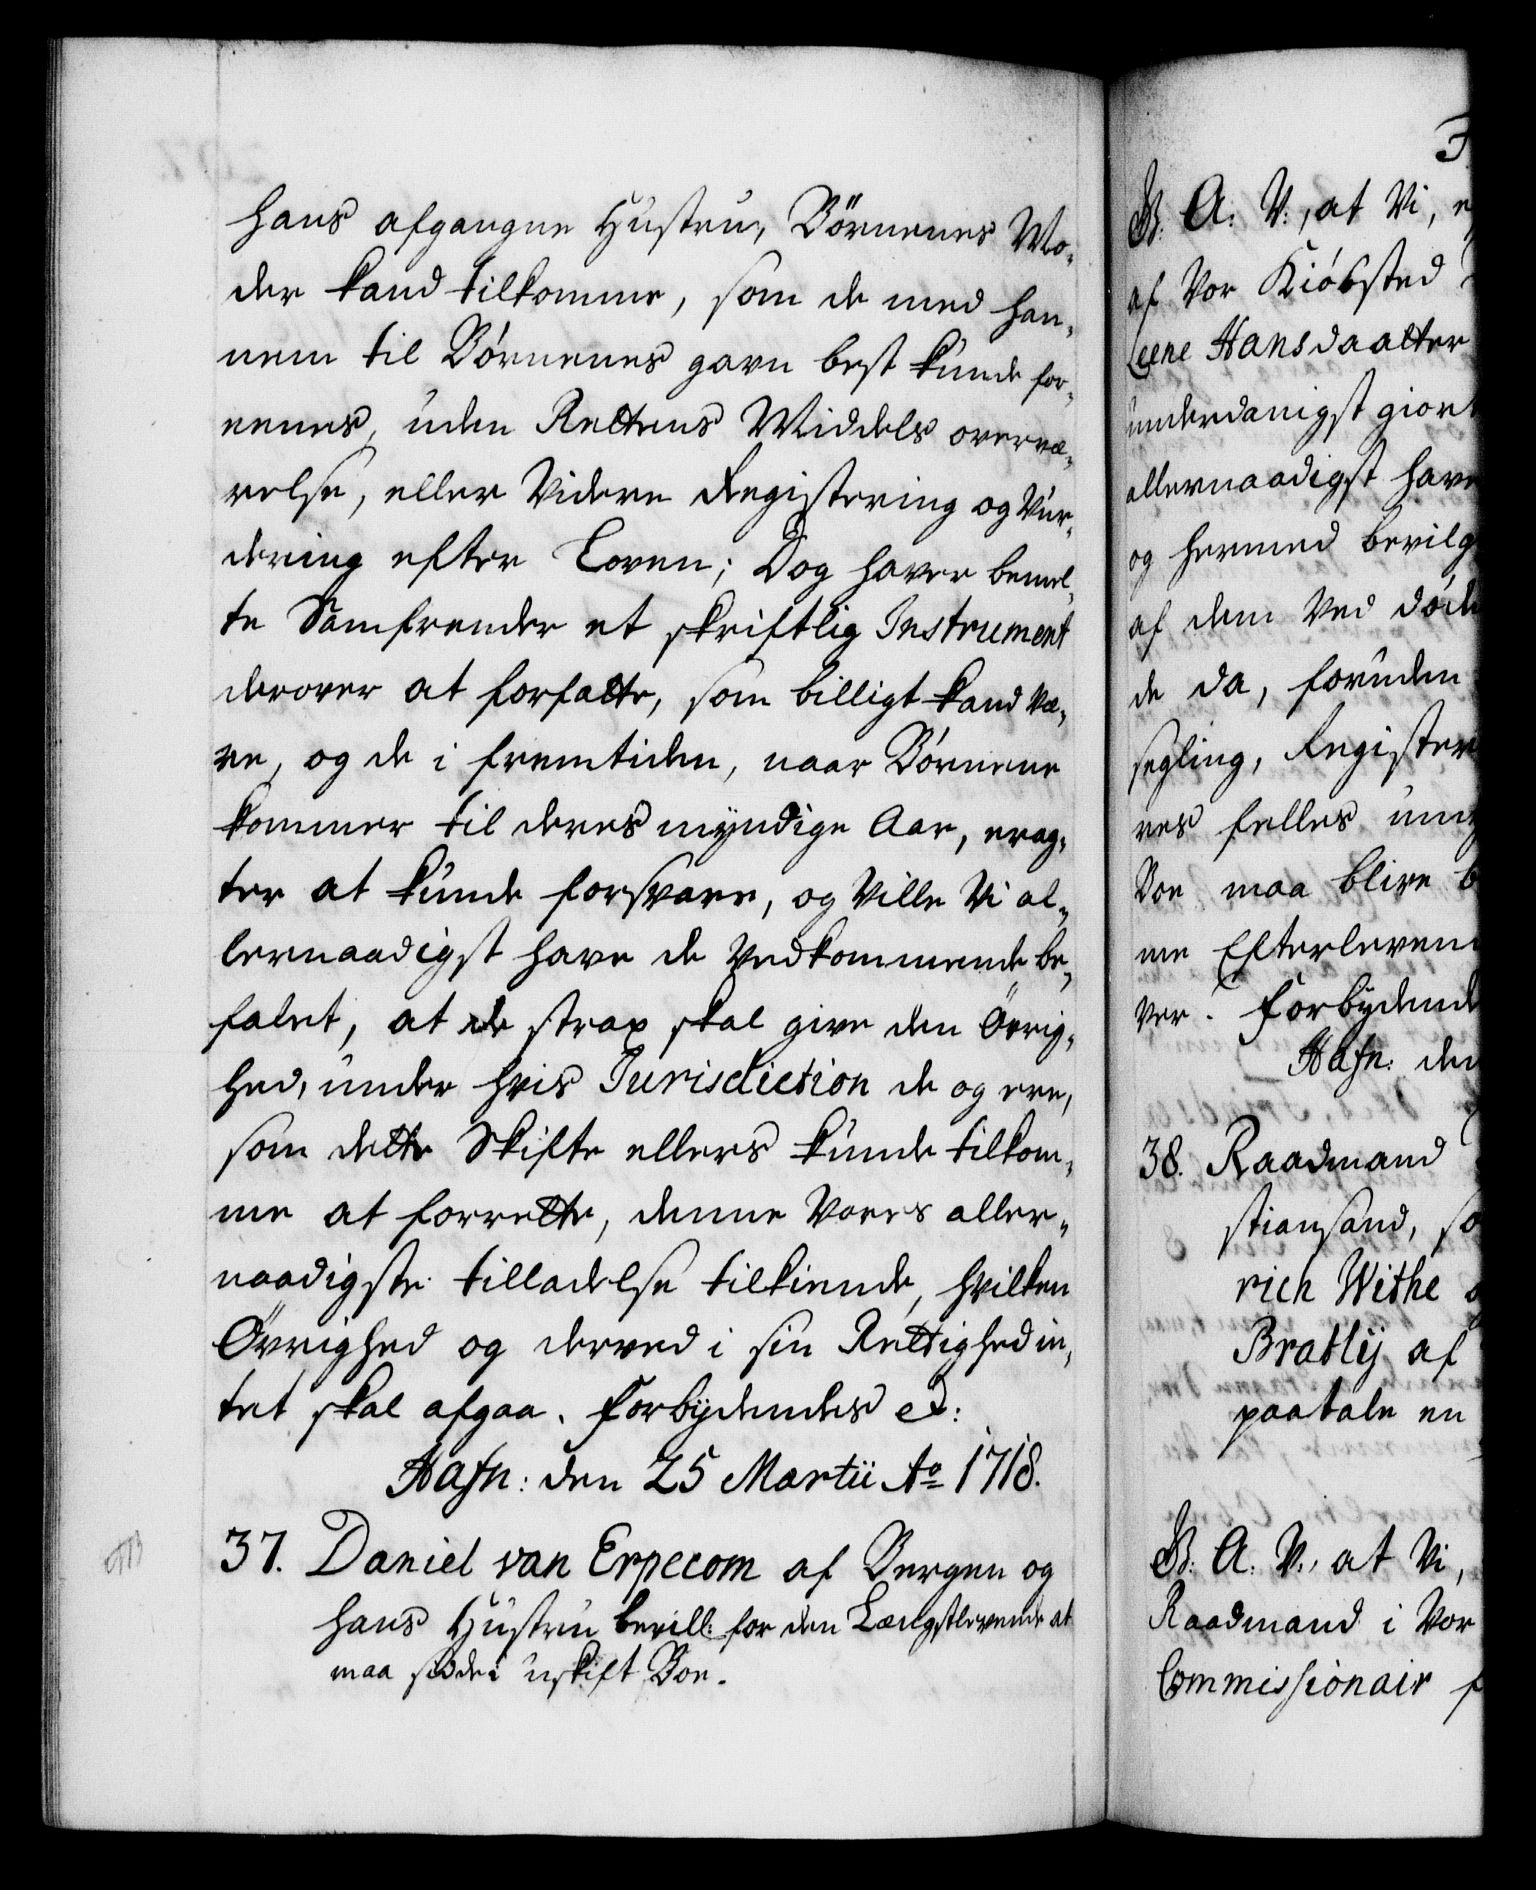 hans afgangne Hustru, Börnenes Mo-
der kand tilkomme, som de med han-
nem til Börnenes gavn best kunde for-
eenes, uden Rettens Middels overvæ-
relse, eller Videre Registering og Vur-
dering efter Loven; Dog haver bemel-
te Samfrender et skriftlig Instrument
derover at forfatte, som billigt kand Væ-
re, og de i fremtiden, naar Börnene
kommer til deres myndige Aar, erag-
ter at kunde forsvare, og Ville Vi al-
lernaadigst have de Vedkommende be-
falet, at de strax skal give den Övrig-
hed, under hvis Jurisdiction de og ere,
som dette Skifte ellers kunde tilkom-
me at forrette, denne Vores aller-
naadigste tilladelse tilkiende, hvilken
Övrighed og derved i sin Rettighed in-
tet skal afgaa. Forbydendes etc:
Hafn: den 25 Martii Ao 1718.
37. Daniel van Erpecom af Bergen og
hans Hustru bevill: for den Længstlevende at
maa sidde i uskift Boe.
G. A. V:, at Vi, e
af Vor Kiöbsted
Leene Hansdaatter
underdanigst giort
allernaadigst have
og hermed bevilg
af dem Ved döde
de da, foruden
segling, Register
res felles um
Boe maa blive b
me Efterleven
ver. Forbydende
Hafn: den
38. Raadmand
stiansand, so
rich Withe o
Bratlij af
paatale en
G. A. V., at Vi,
Raadmand i Vor
Commissionair f